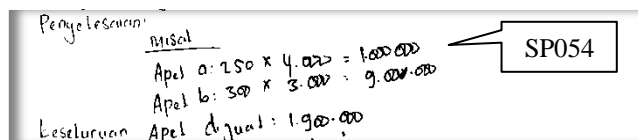 Penyelesaian:
misal
SP054
Apel a: 250 x 4.000 = 1.000.000
Apel b: 300 x 3.000 = 9.000.000
keseluruan Apel dijual: 1.900.000